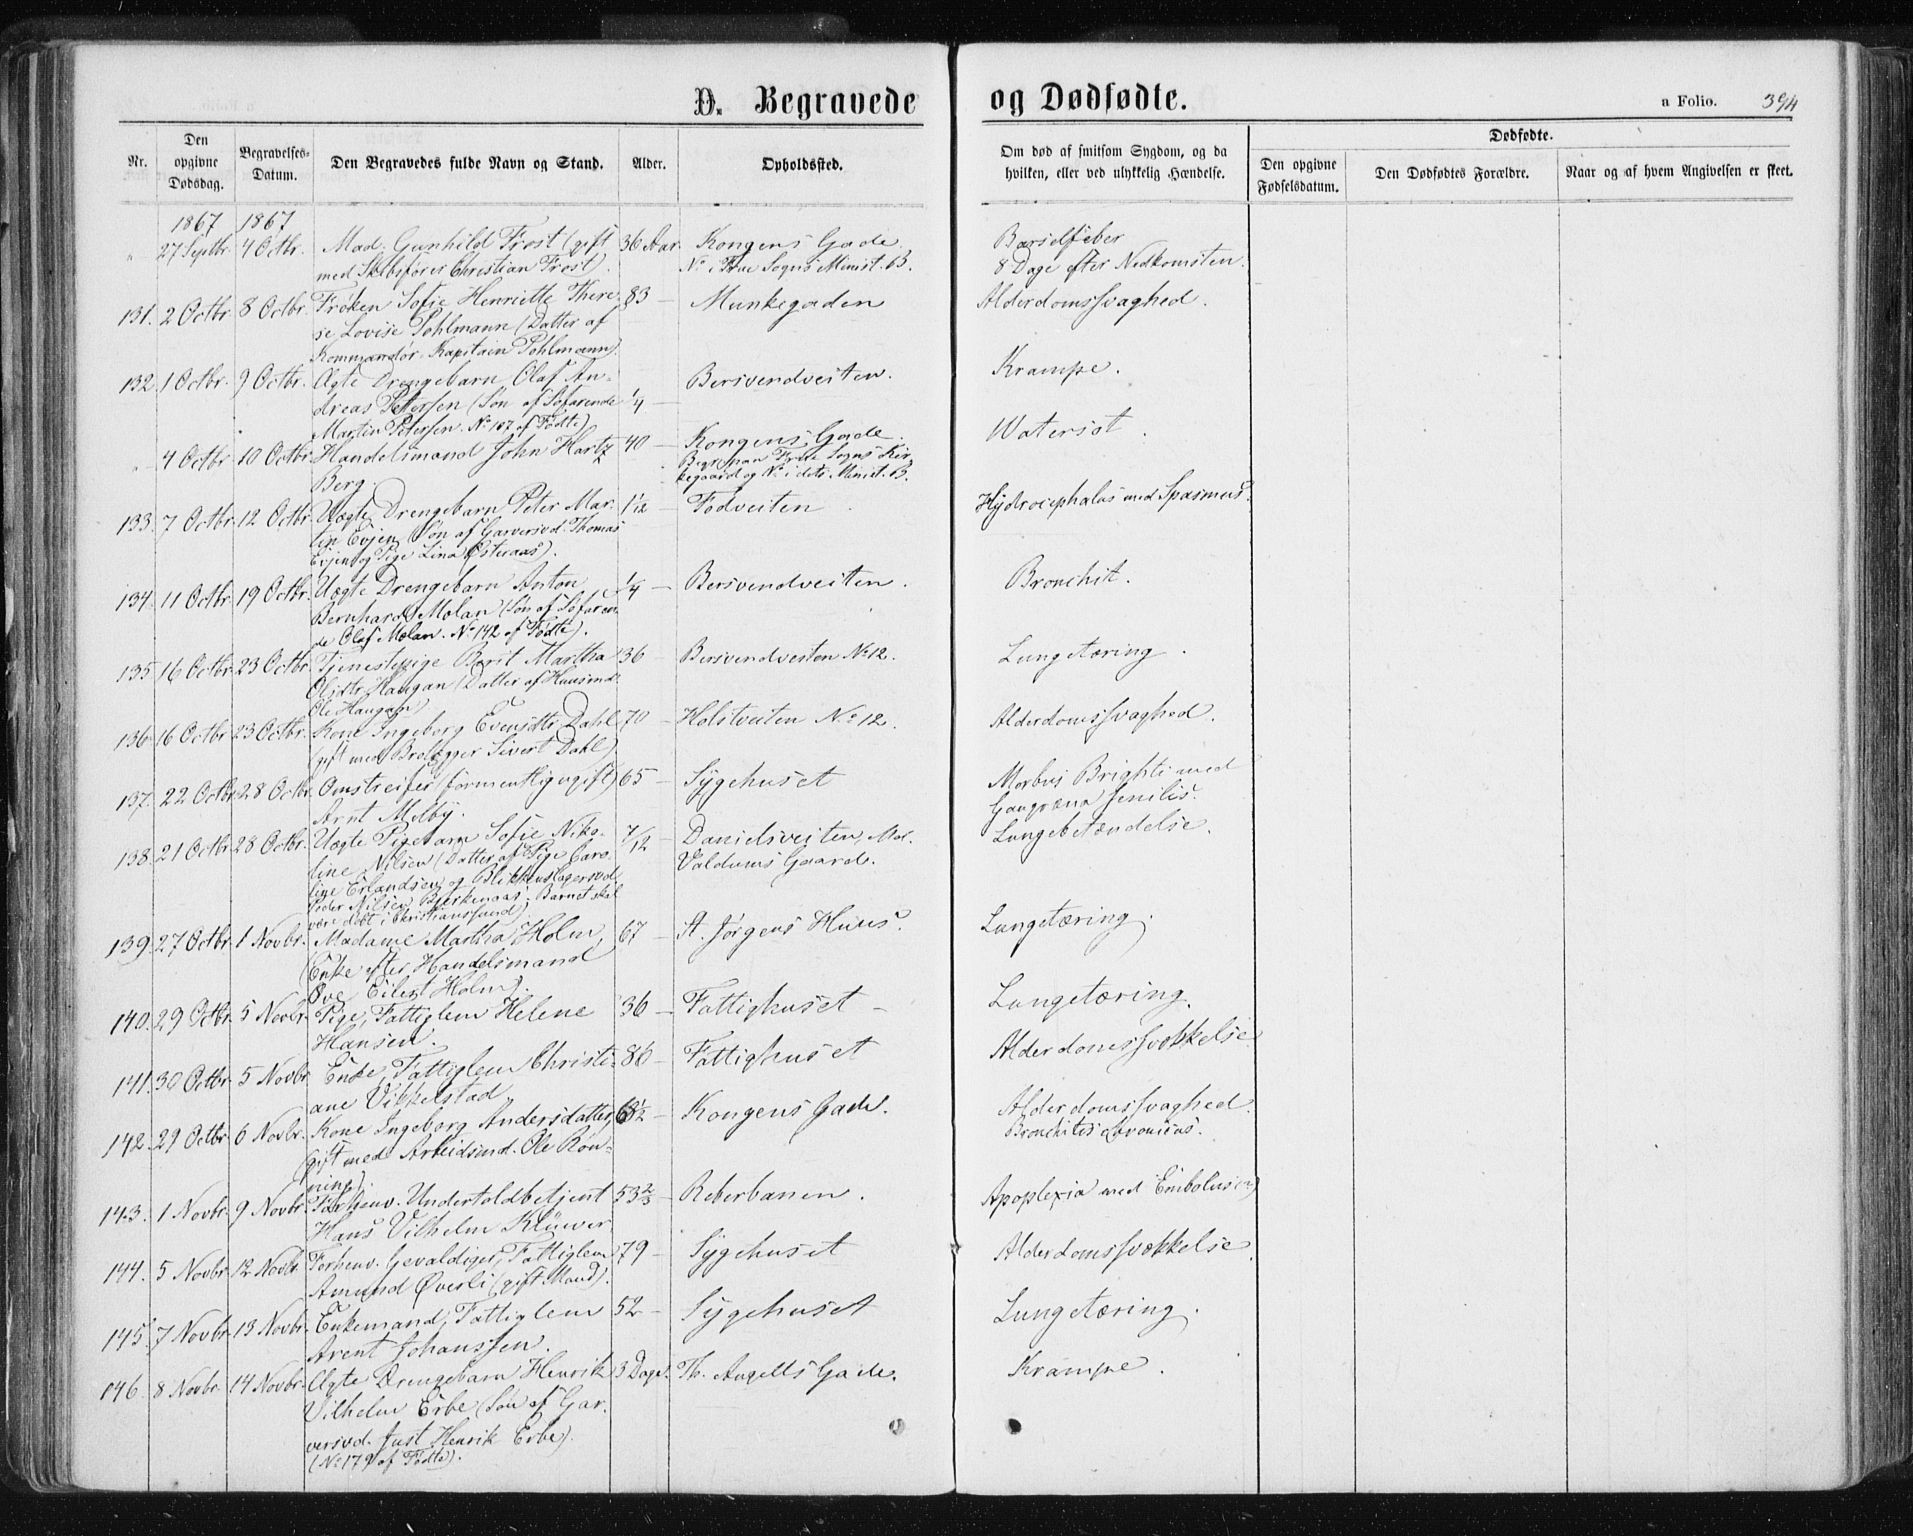 D. Begravede og Dødfødte.
a Folio. 394
Nr. Den opgivne Dødsdag. Begravelses-Datum. Den Begravedes fulde Navn og Stand. Alder. Opholdssted. Om død af smitsom Sygdom, og da hvilken, eller ved ulykkelig Hændelse. Dødfødte.
Den opgivne Fødselsdatum. Den Dødfødtes Forældre. Naar og af hvem Angivelsen er skeet.
1867 1867
" 27 Septbr. 4 Octbr. Mad. Gunhild Frost (gift 36 Aar. Kongens Gade Barselfeber
med Skibsfører Christian Frost). No i Frue Sogns Minist. B. 8 Dage efter Nedkomsten.
131. 2 Octbr. 8 Octbr. Frøken Sofie Henriette There- 83 — Munkegaden Alderdomssvaghed.
se Lovise Pohlmann (Datter af
Kommandør-Kapitain Pohlmann).
132. 1 Octbr. 9 Octbr. Ægte Drengebarn Olaf An- Bersvendveiten. Krampe.
dreas Petersen (Søn af Søfarende 1/4 —
Martin Petersen. No 107 af Fødte)
" 4 Octbr. 10 Octbr. Handelsmand John Hartz 40 — Kongens Gade. Watersot.
Berg. Begr. paa Frue Sogns Kir-
kegaard og No i dets Minist. B.
133. 7 Octbr. 12 Octbr. Uægte Drengebarn Peter Mar- 1 1/12 — Fodveiten Hydrocephalus med Spasmus.
tin Evjen (Søn af Garversvd. Thomas
Evjen og Pige Lina Østeraas).
134. 11 Octbr. 19 Octbr. Uægte Drengebarn Anton 1/4 — Bersvendveiten. Bronchit.
Bernhard Molan (Søn af Søfaren-
de Olaf Molan. No 142 af Fødte).
135. 16 Octbr. 23 Octbr. Tjenestepige Berit Martha 36 — Bersvendveiten No 12. Lungetæring.
Olsdtr. Haugan (Datter af Huusmd.
Ole Haugan)
136. 16 Octbr. 23 Octbr. Kone Ingeborg Evensdtr. Dahl 70 — Holstveiten No 12. Alderdomssvaghed.
(gift med Brolægger Sivert Dahl).
137. 22 Octbr. 28 Octbr. Omstreifer (formentlig ugift) 65 — Sygehuset Morbus Brightii med
Arnt Melby. Gangræna senilis.
138. 21 Octbr. 28 Octbr. Uægte Pigebarn Sofie Niko- 7/12 — Danielsveiten, Mad. Lungebetændelse.
line Nilsen (Datter af Pige Caro- Valdums Gaard.
line Erlandsen og Blikkenslagersvd.
Peder Nilsen Birkenaas; Barnet skal
være døbt i Christianssund)
139. 27 Octbr. 1 Novbr. Madame Martha Holm, 67 — St. Jørgens Huus. Lungetæring.
(Enke efter Handelsmand
Ove Eilert Holm).
140. 29 Octbr. 5 Novbr. Pige, Fattiglem Helene 36 — Fattighuset — Lungetæring.
Hansen.
141. 30 Octbr. 5 Novbr. Enke, Fattiglem Christi- 86 — Fattighuset Alderdomssvækkelse
ane Vikkelstad
142. 29 Octbr. 6 Novbr. Kone Ingeborg Andersdatter, 63 1/2 — Kongens Gade. Alderdomssvaghed.
(gift med Arbeidsmd. Ole Røn- Bronchitis chronicus.
ning)
143. 1 Novbr. 9 Novbr. Forhenv. Undertoldbetjent 53 2/3 — Reberbanen. Apoplexia med Embolus
Hans Vilhelm Klüwer
144. 5 Novbr. 12 Novbr. Forhenv. Gevaldiger, Fattiglem 79 — Sygehuset Alderdomssvækkelse.
Amund Øverli (gift Mand).
145. 7 Novbr. 13 Novbr. Enkemand, Fattiglem 52 — Sygehuset Lungetæring.
Arent Johanssen.
146. 8 Novbr. 14 Novbr. Ægte Drengebarn Henrik 3 Dage. Th. Angells Gade. Krampe.
Vilhelm Erbe (Søn af Gar-
versvd. Just Henrik Erbe).
(No 179 af Fødte).